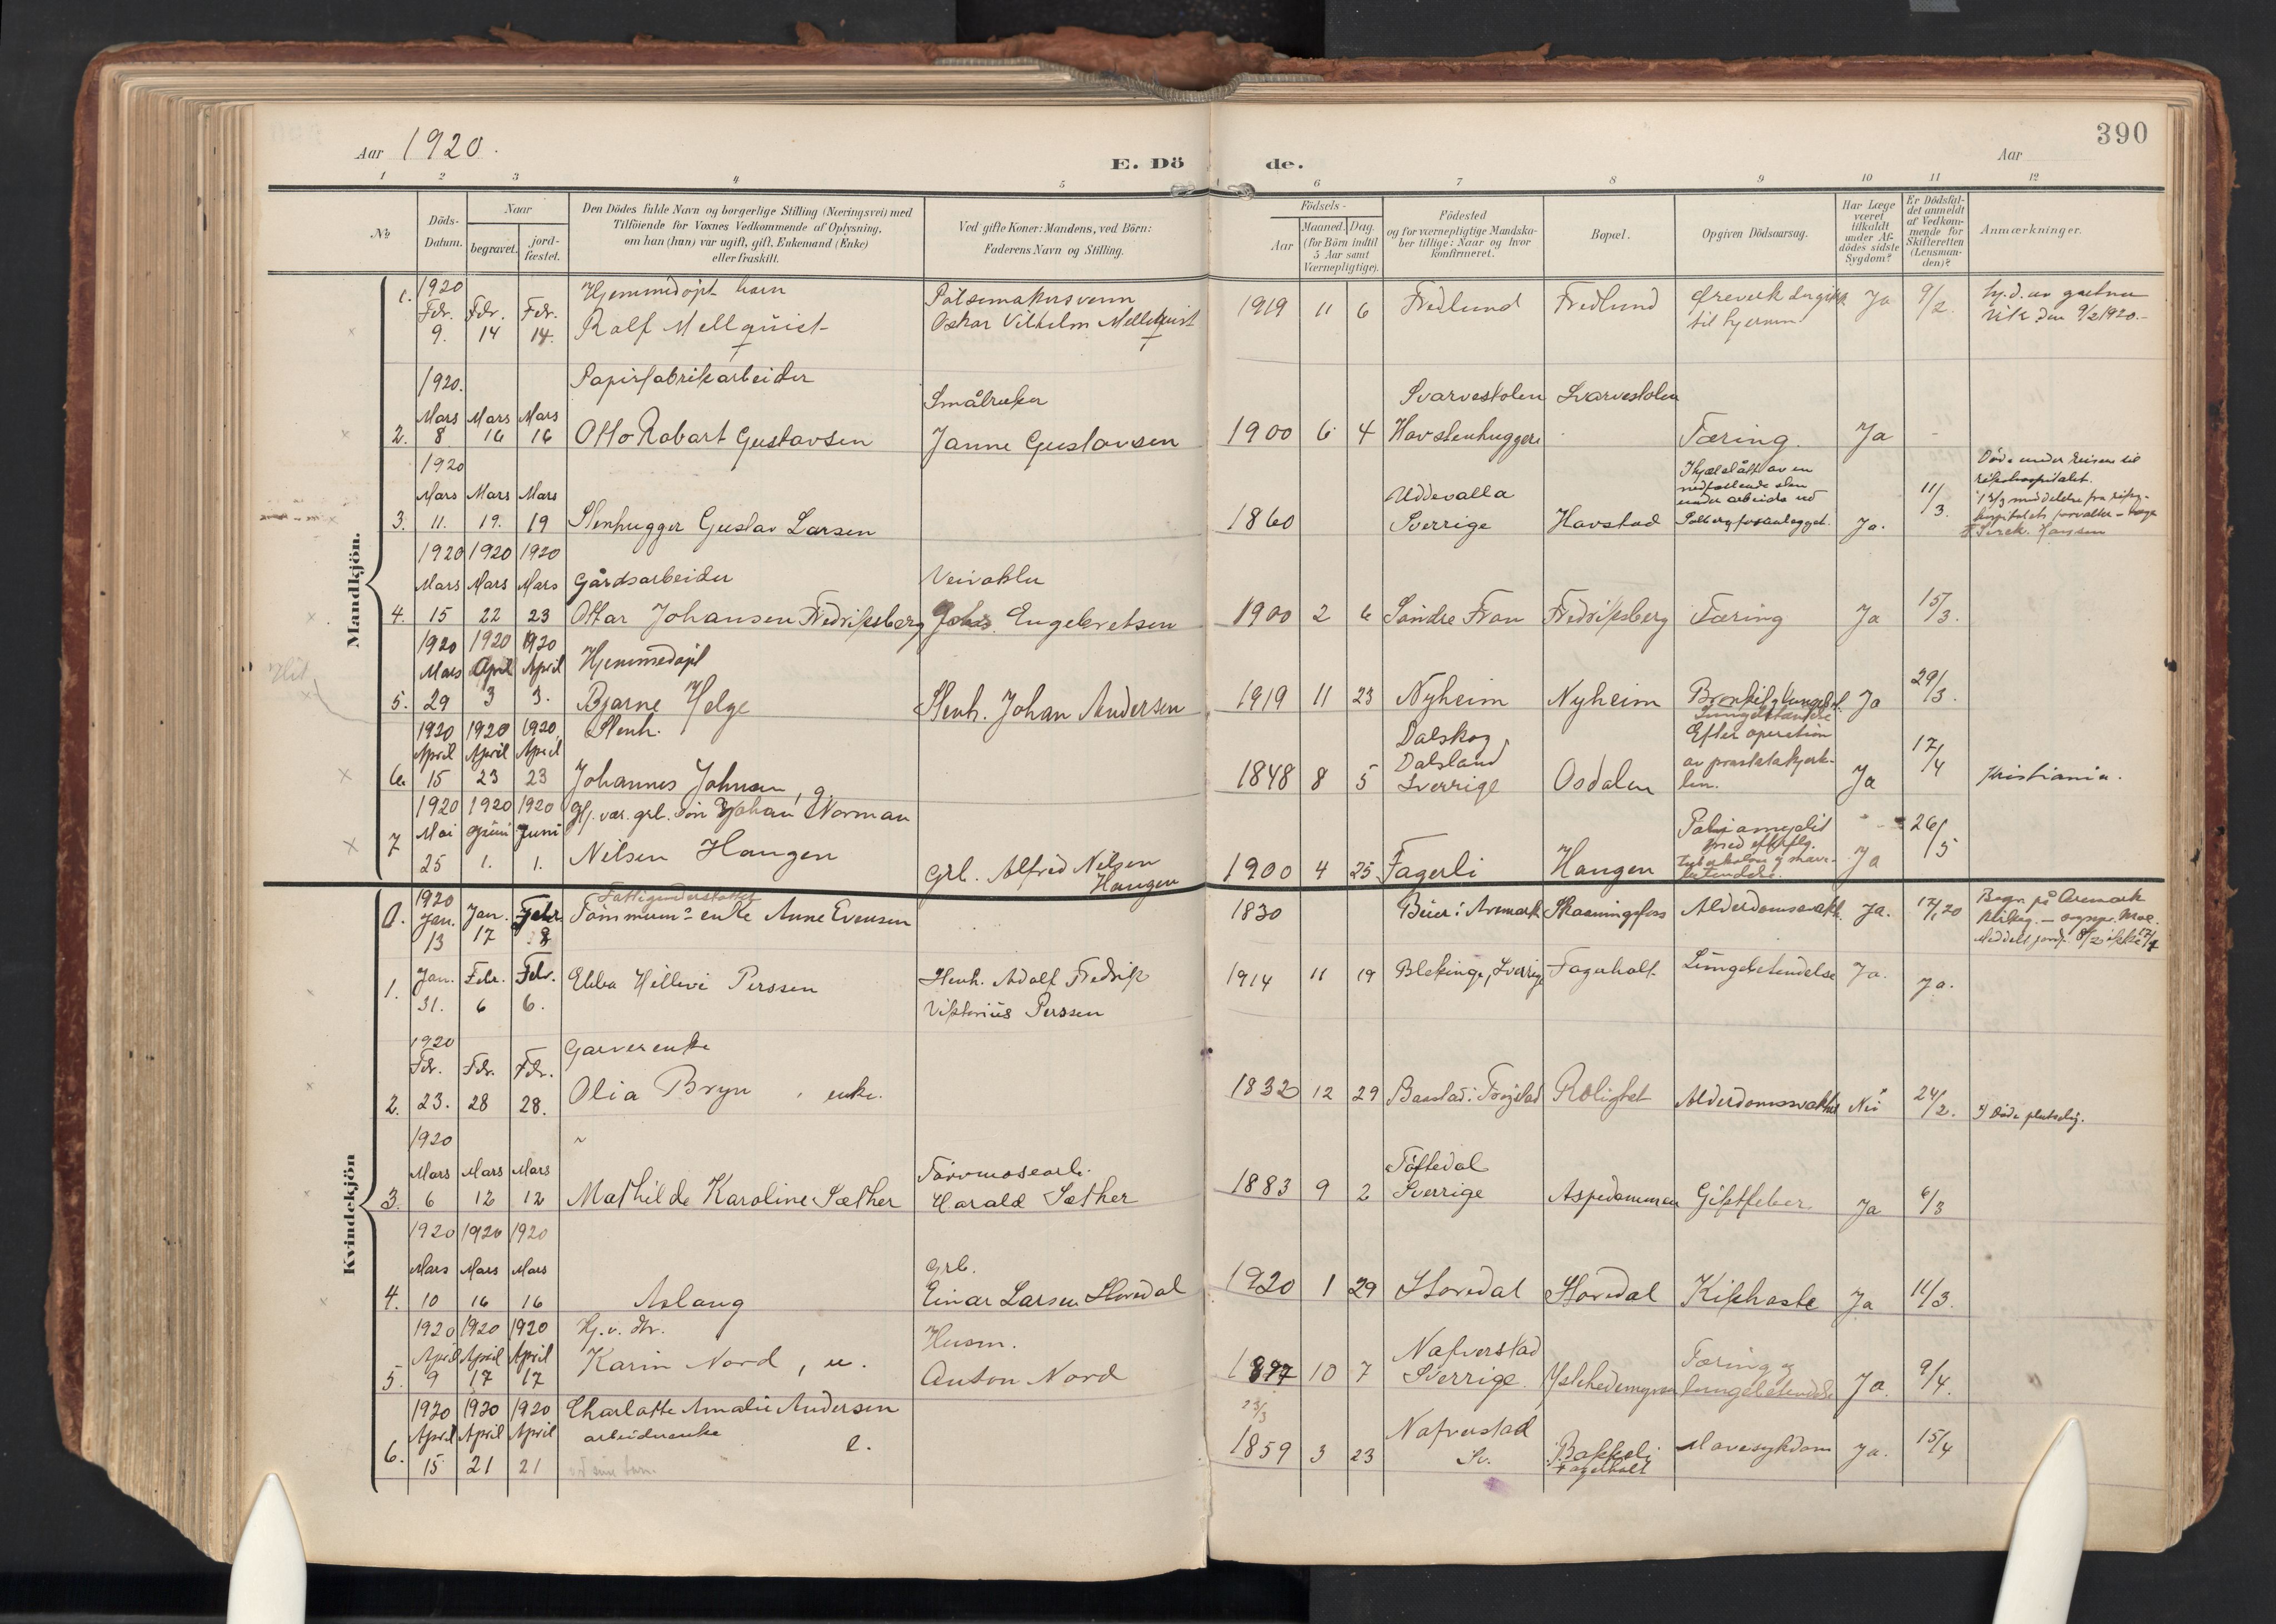 390
Aar 1920.
E. Dö de.
Aar
1 2 3 4 5 6 7 8 9 10 11 12
No
Döds-
Datum.
Naar
begravet.
jord-
fæstet.
Den Dödes fulde Navn og borgerlige Stilling (Næringsvei) med
Tilföiende for Voxnes Vedkommende af Oplysning,
om han (hun) var ugift, gift, Enkemand (Enke)
eller fraskilt.
Ved gifte Koner: Mandens, ved Börn:
Faderens Navn og Stilling.
Födsels-
Aar
Maaned. Dag.
(for Börn indtil
5 Aar samt
Værnepligtige).
Födested
og for værnepligtige Mandska-
ber tillige: Naar og hvor
konfirmeret.
Bopæl.
Opgiven Dödsaarsag.
Har Læge
været
tilkaldt
under Af-
dödes sidste
Sygdom?
Er Dödsfal-
det anmeldt
af Vedkom-
mende for
Skifteretten
(Lensman-
den)?
Anmærkninger.
Mandkjön.
1. 1920 Febr. 9. Febr. 14 Febr. 14.
Hjemmedöpt barn
Rolf Mellquist
Oskar Vilhelm Mellquist
1919 11 6 Fredlund Fredlund
til hjernen
Ja 9/2
Vik den 9/2 1920.-
2. 1920. Mars 8 Mars 16 Mars 16
Papirfabrikarbeider
Otto Robart Gustavsen
Janne Gustavsen
1900 6 4
Svarvestolen
Svarvestolen
Tæring. Ja -
3. 1920 Mars 11. Mars 19. Mars 19
Stenhugger Gustav Larsen
1860
Uddevalla
Sverrige
Havstad
Ihjælslått av en
nedfallende sten
under arbeide ved
Ja. 11/3.
Döde under reisen til
rikshospitalet.
4. 1920 Mars 15 1920 Mars 22 1920 Mars 23
Gårdsarbeider
Ottar Johansen Fredriksberg
Veivokter
Johs. Engebretsen
1900 2 6 Söndre Fron Fredriksberg Tæring Ja 15/3.
5. 1920 Mars 29 1920 April 3 1920 April 3.
Hjemmedöpt
Bjarne Helge
Stenh. Johan Andersen
1919 11 23 Nyheim Nyheim
Ja 29/3.
6. 1920 April 15 1920 April 23 1920 April 23
Stenh.
Johannes Johnsen, g.
1848 8 5
Dalskog
Dalsland
Sverrige
Osdalen
Efter operation
av prostatakjert-
len.
Ja 17/4
Kristiania.
7 1920 Mai 25 1920 Juni 1. 1920 Juni 1.
Hj. vær. grb. sön Johan Norman
Nilsen Haugen
Grb. Alfred Nilsen
Haugen
1900 4 25 Fagerli Haugen
Ja 26/5
Kvindekjön
0. 1920 Jan. 13 Jan. 17 Febr. 8
Fattigunderstöttet
Tömmerm. enke Anne Evensen
1830 i Aremark Skaaningsfoss Alderdomssvakh. Ja. 17/1 20
Begr. på Aremark
1. Jan. 31. Febr. 6 Febr. 6.
Ebba Hillevi Perssen
Stenh. Adolf Fredrik
Viktorius Perssen
1914 11 19 Blekinge, Sverrige Fagerholt Lungebetendelse Ja. Ja.
2. 1920 Febr. 23. Febr. 28 Febr. 28.
Garverenke
Olia Bryn, enke.
1832 12 29 Baastad i Trøgstad Rolighet Alderdomssvakhet Nei 24/2.
Döde plutselig.
3. 1920 Mars 6 Mars 12 Mars 12
Mathilde Karoline Sæther
Torvmosearb.
Harald Sæther
1883 9 2
Töftedal
Sverrige
Aspedammen Giktfeber Ja 6/3
4. 1920 Mars 10 1920 Mars 16 1920 Mars 16
Aslaug
Grb.
Einar Larsen Storedal
1920 1 29 Storedal Storedal Kikhoste Ja 11/3.
5. 1920 April 9 1920 April 17 1920 April 17
Hj. v. dtr.
Karin Nord, u.
Husm.
Anton Nord
1897 10 7
Nafverstad
Sverrige
Tæring og
lungebetendelse
Ja. 9/4.
6. 1920 April 15 1920 April 21 1920 April 21
Charlotte Amalie Andersen
arbeiderenke
e.
23/3
1859 3 23
Nafverstad
Sv.
Bakkeli
Fagerholt
Mavesykdom Ja. 15/4